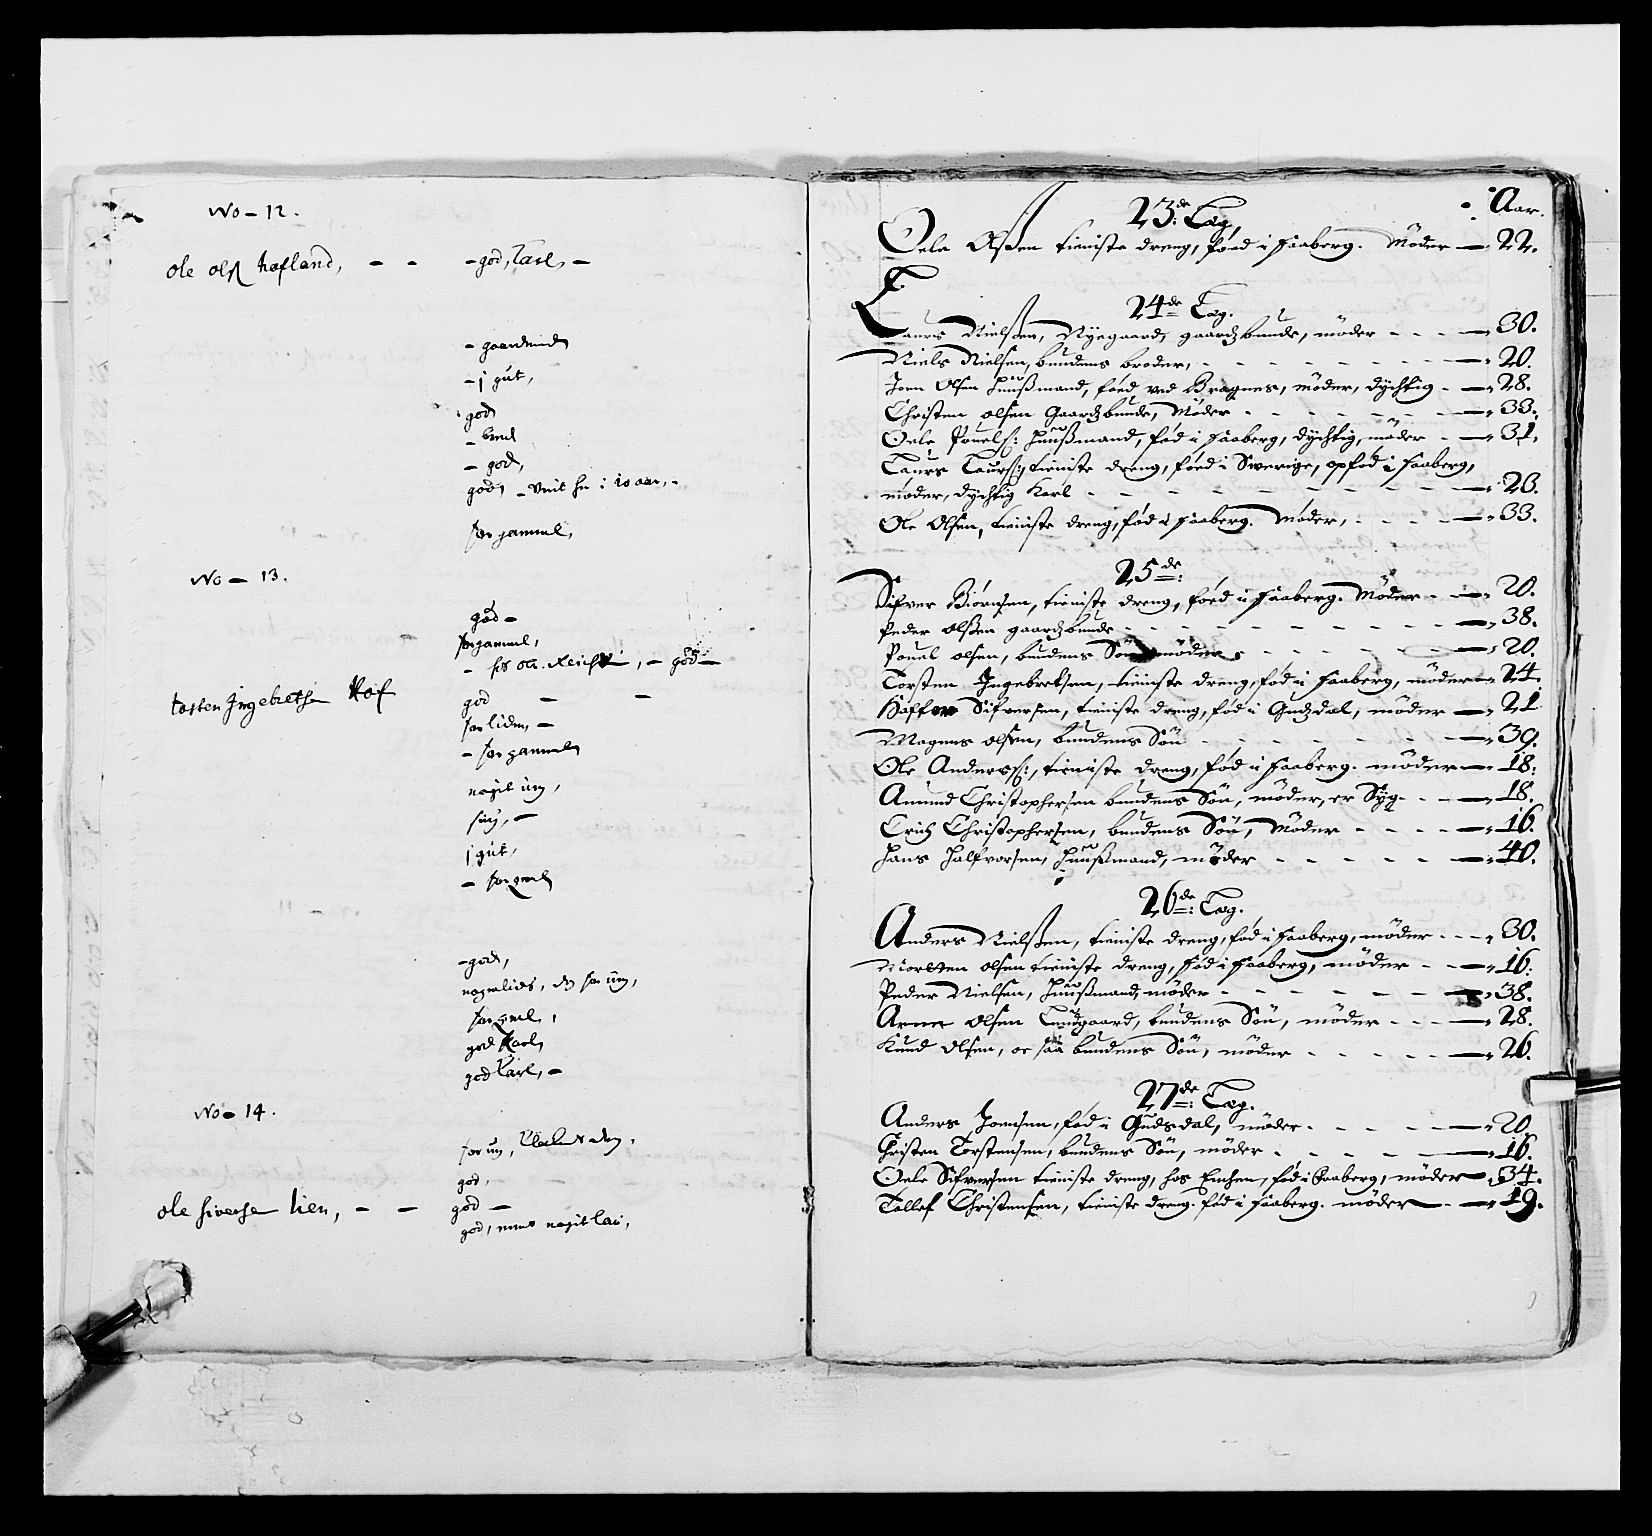 No - 12.
ole olß hafland, - - - god, Karl, -
- gaardmand
- j gut,
god,
- bond
- god,
god, - Vnit hu i 10 aar, -
for gammel,
No - 13.
god -
for gammel,
- god -
tosten Jngebretsen Hof god - -
for liden, -
- for gammel
nogit ung,
siug, -
j gut,
- for gml
- god,
nogenlids, dog for ung,
for gml,
god Karl,
god Karl, -
No - 14.
for ung,
god,
ole siversen lien, - - god -
god, mens nogit lav,
23de: Læg. Aar.
Oele Olßen tieniste dreng, føed i Faaberg. Møder - 22.
24de Læg.
Laurs Nielßen, Nyegaard, gaardzbunde, møder - - - 30.
Niels Nielsen, bundens broder, - - - 20.
Joen Olsen huußmand, føed ved Bragnes, møder, dychtig - 28.
Christen olsen Gaardzbunde, Møder - - - 33.
Oele Pouels: huußmand, fød i Faaberg, dychtig, møder - 31.
Laurs Laurs: tieniste dreng, føed i Swerige, opfød i Faaberg,
møder, dychtig Karl - - - 20.
Ole Olsen, tieniste dreng, fød i Faaberg. Møder, - - - 33.
25de:
Sifver Biørnsen, tieniste dreng, føed i Faaberg. Møder - - 20.
Peder olßen gaardzbunde - - - 38.
Pouel olsen, bundens Søn møder - - - 20.
Torsten Jngebretsen, tieniste dreng, fød i Faaberg, møder - 24.
Haffor Sifversen, tieniste dreng, fød i Gudzdal, møder - 21
Magnus olsen, bundens Søn - - - 39.
Ole Anderss:, tieniste dreng, fød i Faaberg. møder - 18:
Amund Christophersen bundens Søn, møder, er Syg - - - 18.
Erich Christophersen, bundens Søn, Møder - - - 16.
Hans Halfvorsen, huußmand, møder - - - 40.
26de: Læg.
Anders Nielßen, tieniste dreng, fød i Faaberg, møder - - - 30.
Morten olsen tieniste dreng, fød i Faaberg, møder - - 16:
Peder Nielsen, huußmand, møder - - - 38.
Arne olsen Lundgaard, bundens Søn, møder - - - 28.
Knud Olsen, oc saa bundens Søn, møder - - - 26.
27de: Læg.
Anders Joensen, fød i Gudsdal, møder - - - 20.
Christen Torstensen, bundens Søn, møder - - - 16.
Oele Sifversen tieniste dreng, hos Enchen, fød i Faaberg, møder - 34.
Tollef Christensen, tieniste dreng. fød i Faaberg. møder - 19.